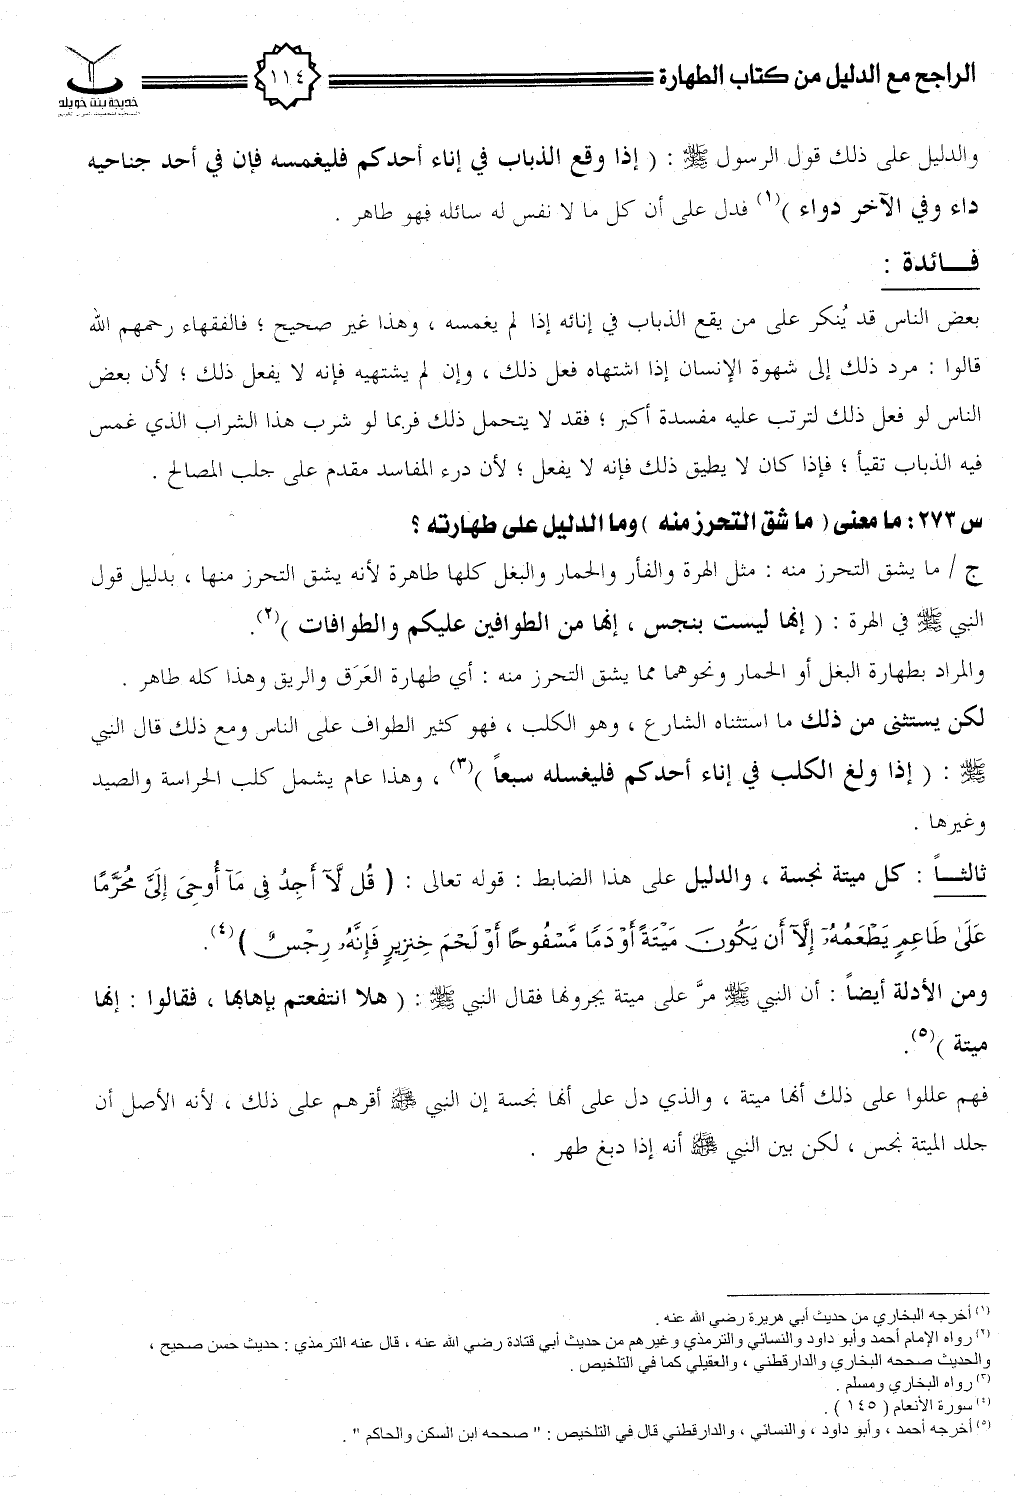 الراجح مع الدليل من كتاب الطهارة
١١٤
خديجة بنت خويلد
والدليل على ذلك قول الرسول ﷺ : ( إذا وقع الذباب في إناء أحدكم فليغمسه فإن في أحد جناحيه
داء وفي الآخر دواء )(١) فدل على أن كل ما لا نفس له سائله فهو طاهر .
فـــائدة :
بعض الناس قد يُنكر على من يقع الذباب في إنائه إذا لم يغمسه ، وهذا غير صحيح ؛ فالفقهاء رحمهم الله
قالوا : مرد ذلك إلى شهوة الإنسان إذا اشتهاه فعل ذلك ، وإن لم يشتهيه فإنه لا يفعل ذلك ؛ لأن بعض
الناس لو فعل ذلك لترتب عليه مفسدة أكبر ؛ فقد لا يتحمل ذلك فربما لو شرب هذا الشراب الذي غمس
فيه الذباب تقيأ ؛ فإذا كان لا يطيق ذلك فإنه لا يفعل ؛ لأن درء المفاسد مقدم على جلب المصالح .
س ٢٧٣ : ما معنى ( ما شق التحرز منه ) وما الدليل على طهارته ؟
ج / ما يشق التحرز منه : مثل الهرة والفأر والحمار والبغل كلها طاهرة لأنه يشق التحرز منها ، بدليل قول
النبي ﷺ في الهرة : ( إنها ليست بنجس ، إنها من الطوافين عليكم والطوافات )(٢).
والمراد بطهارة البغل أو الحمار ونحوهما مما يشق التحرز منه : أي طهارة العَرَق والريق وهذا كله طاهر .
لكن يستثنى من ذلك ما استثناه الشارع ، وهو الكلب ، فهو كثير الطواف على الناس ومع ذلك قال النبي
ﷺ : ( إذا ولغ الكلب في إناء أحدكم فليغسله سبعاً )(٣) ، وهذا عام يشمل كلب الحراسة والصيد
وغيرها .
ثالثـــاً : كل ميتة نجسة ، والدليل على هذا الضابط : قوله تعالى : ( قُل لَّآ أَجِدُ فِى مَآ أُوحِىَ إِلَىَّ مُحَرَّمًا
عَلَىٰ طَاعِمٍ يَطْعَمُهُۥٓ إِلَّآ أَن يَكُونَ مَيْتَةً أَوْ دَمًا مَّسْفُوحًا أَوْ لَحْمَ خِنزِيرٍ فَإِنَّهُۥ رِجْسٌ )(٤).
ومن الأدلة أيضاً : أن النبي ﷺ مرَّ على ميتة يجرونها فقال النبي ﷺ : ( هلا انتفعتم بإهابها ، فقالوا : إنها
ميتة )(٥).
فهم عللوا على ذلك أنها ميتة ، والذي دل على أنها نجسة إن النبي ﷺ أقرهم على ذلك ، لأنه الأصل أن
جلد الميتة نجس ، لكن بين النبي ﷺ أنه إذا دبغ طهر .
(١) أخرجه البخاري من حديث أبي هريرة رضي الله عنه .
(٢) رواه الإمام أحمد وأبو داود والنسائي والترمذي وغيرهم من حديث أبي قتادة رضي الله عنه ، قال عنه الترمذي : حديث حسن صحيح ،
والحديث صححه البخاري والدارقطني ، والعقيلي كما في التلخيص .
(٣) رواه البخاري ومسلم .
(٤) سورة الأنعام ( ١٤٥ ) .
(٥) أخرجه أحمد ، وأبو داود ، والنسائي ، والدارقطني قال في التلخيص : " صححه ابن السكن والحاكم " .